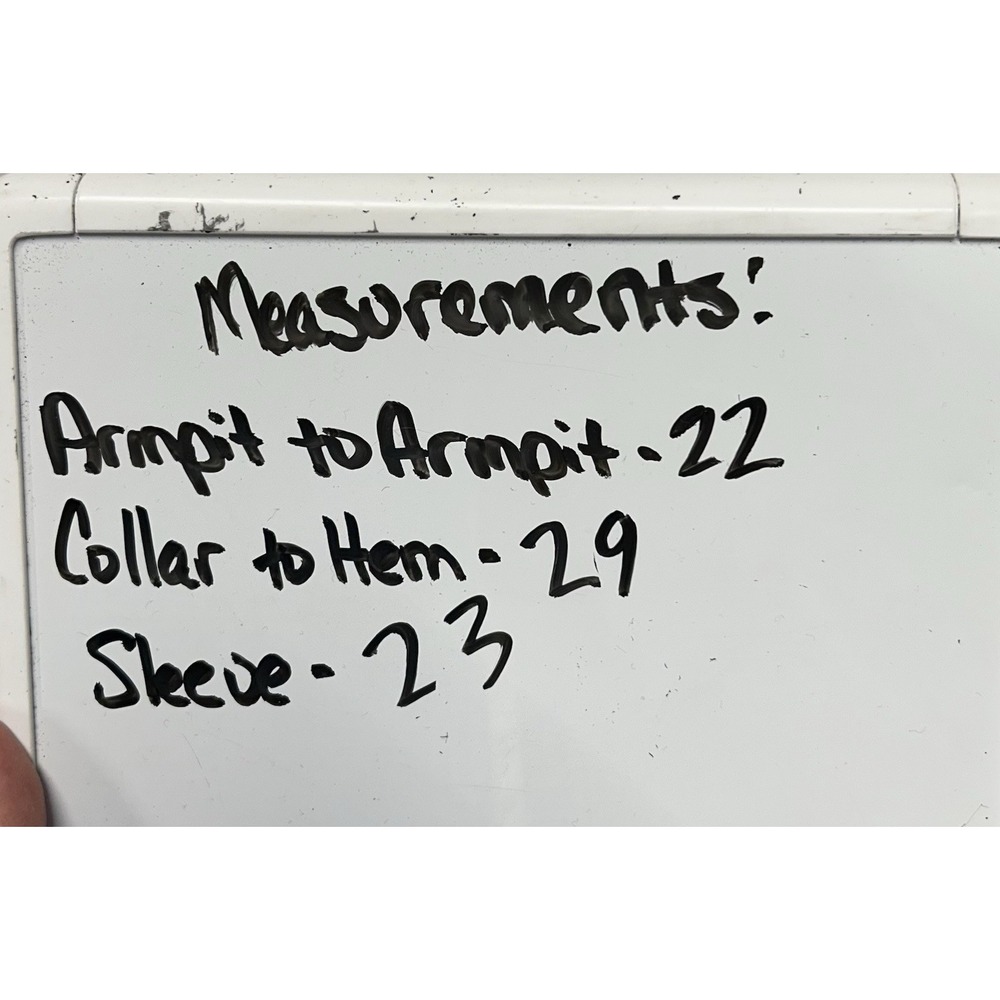 Measurements:
Armpit to Armpit - 22
Collar to Hem - 29
Sleeve - 23